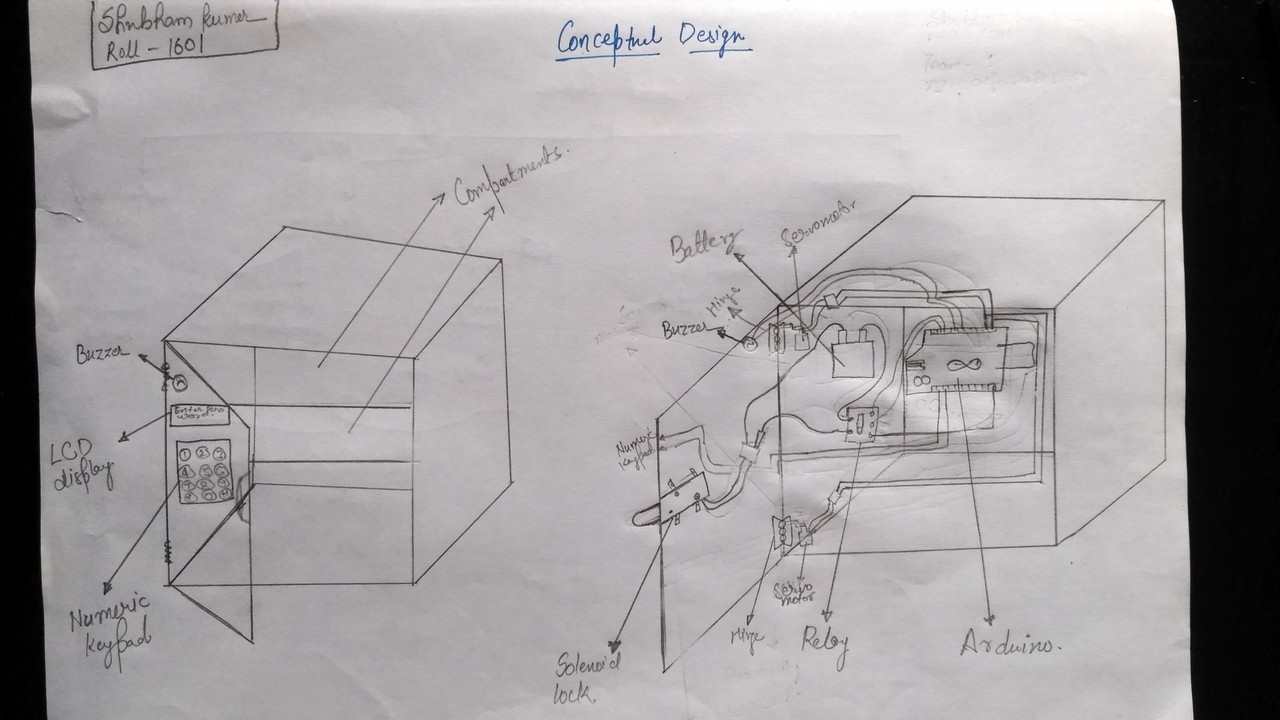 Shubham Kumar
Roll - 1601
Conceptual Design
Compartments.
Buzzer
LCD
display
Numeric
keypad
Battery
Servomotor
Hinge
Buzzer
Numeric
keypad
Solenoid
lock.
Hinge
Servo
motor
Relay
Arduino.